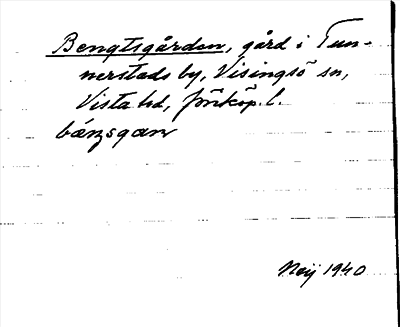 Bengtsgården, gård i Tun-
nerstads by, Visingsö sn,
Vista hd, Jönköp. l.
bánsgan
Neij 1940